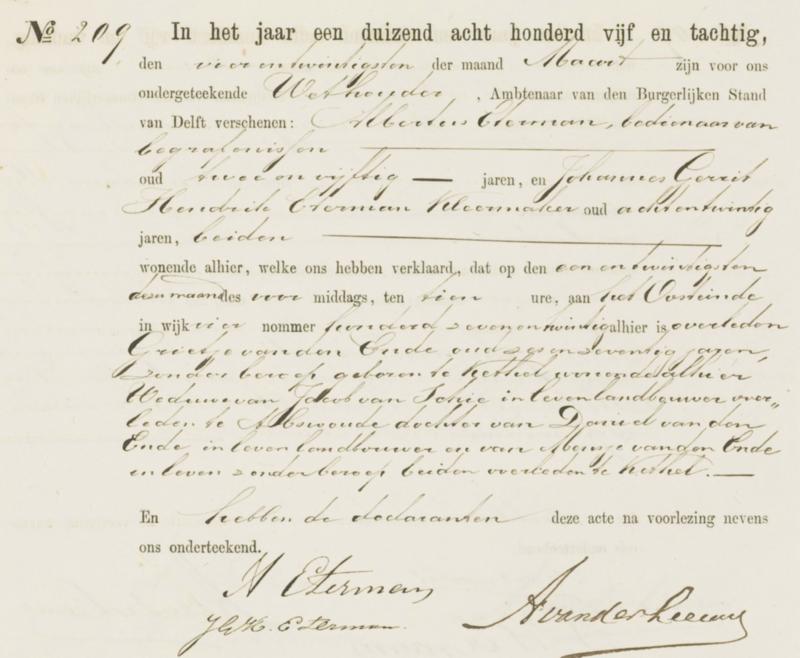 No 209 In het jaar een duizend acht honderd vijf en tachtig,
den vier en twintigsten der maand Maart zijn voor ons
ondergeteekende Wethouder, Ambtenaar van den Burgerlijken Stand
van Delft verschenen: Albertus Eterman, bedienaar van
begrafenissen
oud twee en vijftig — jaren, en Johannes Gerrit
Hendrik Eterman Kleermaker oud acht en twintig
jaren, beiden
wonende alhier, welke ons hebben verklaard, dat op den een en twintigsten
dezer maand des voor middags, ten tien ure, aan het Oosteinde
in wijk vier nommer honderd zeven en twintig alhier is overleden
Grietje van den Ende oud zes en zeventig jaren,
zonder beroep geboren te Kethel wonende alhier
Weduwe van Jacob van Schie in leven landbouwer over„
leden te Abswoude dochter van Daniel van den
Ende in leven landbouwer en van Mensje van den Ende
in leven zonder beroep beiden overleden te Kethel. —
En hebben de declaranten deze acte na voorlezing nevens
ons onderteekend.
A Eterman
J.G.H. Eterman. A van der Leeuw